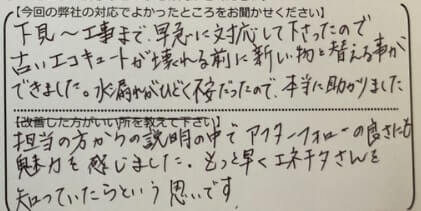 【今回の弊社の対応でよかったところをお聞かせください】
下見〜工事まで、早急に対応して下さったので
古いエコキュートが壊れる前に新しい物と替える事が
できました。水漏れがひどく不安だったので、本当に助かりました
【改善した方がいい所を教えて下さい】
担当の方からの説明の中でアフターフォローの良さにも
魅力を感じました。もっと早くエネチタさんを
知っていたらという思いです。